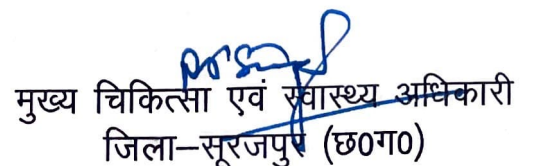 मुख्य चिकित्सा एवं स्वास्थ्य अधिकारी
जिला–सूरजपुर (छ0ग0)